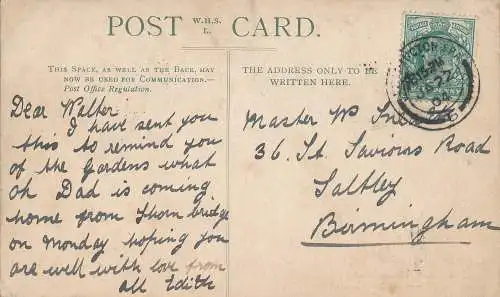 POST W.H.S. L. CARD.
THIS SPACE, AS WELL AS THE BACK, MAY
NOW BE USED FOR COMMUNICATION.—
Post Office Regulation.
THE ADDRESS ONLY TO BE
WRITTEN HERE.
Dear Walter
I have sent you
this to remind you
of the Gardens what
oh Dad is coming
home from Thornbridge
on Monday hoping you
are well with love from
all Edith
Master W
36. St. Saviours Road
Saltley
Birmingham